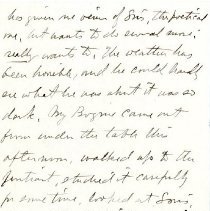 has given me views of Iris, the poetical
one, but wants to do several more;
really wants to. The weather has
been horrible, and he could hardly
see what he was about it was so
dark. My Bogus came out
from under the table this
afternoon, walked up to the
portrait, studied it carefully
for some time, looked at Iris,